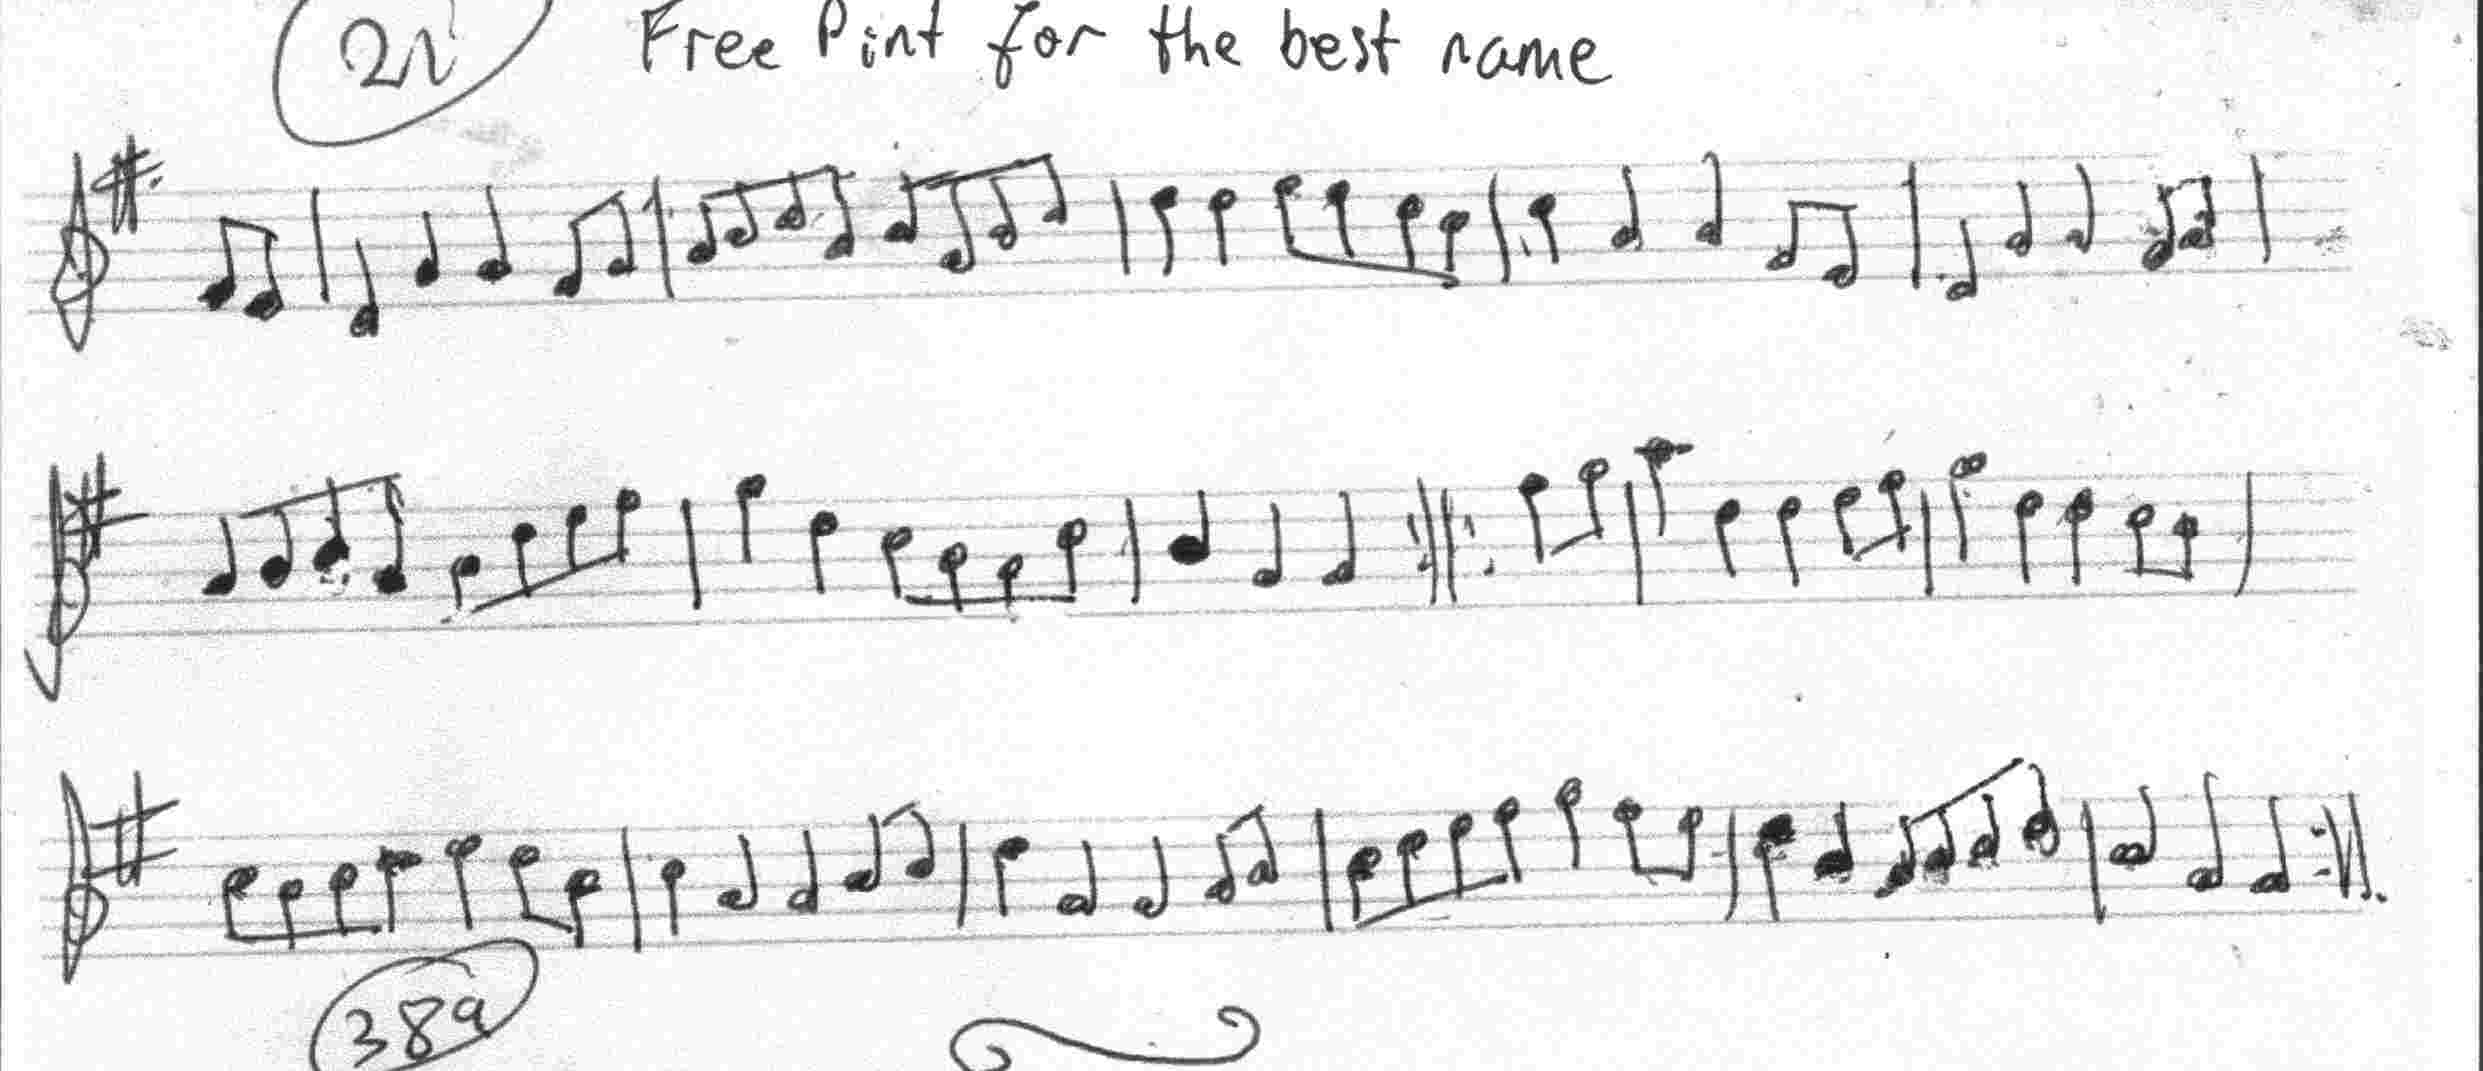 Free Pint for the best name
389